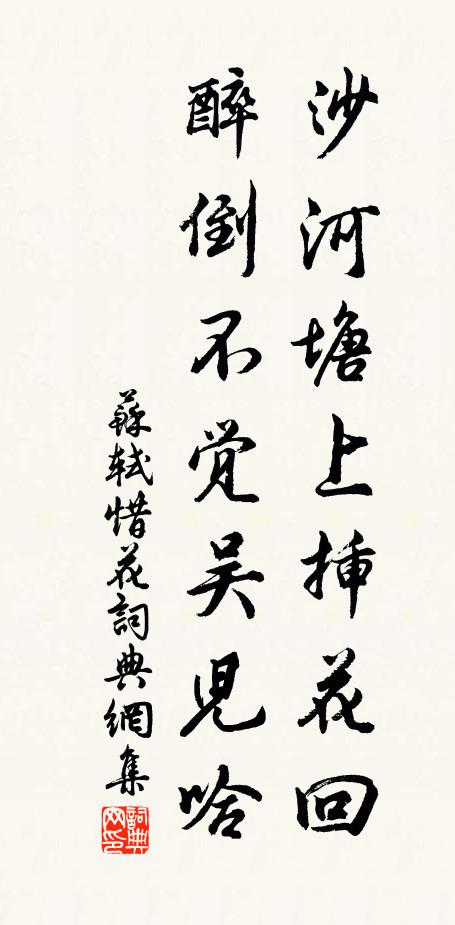 沙河塘上插花回
醉倒不觉吴児哈
蘇軾惜花詞典網集
詞典
网印